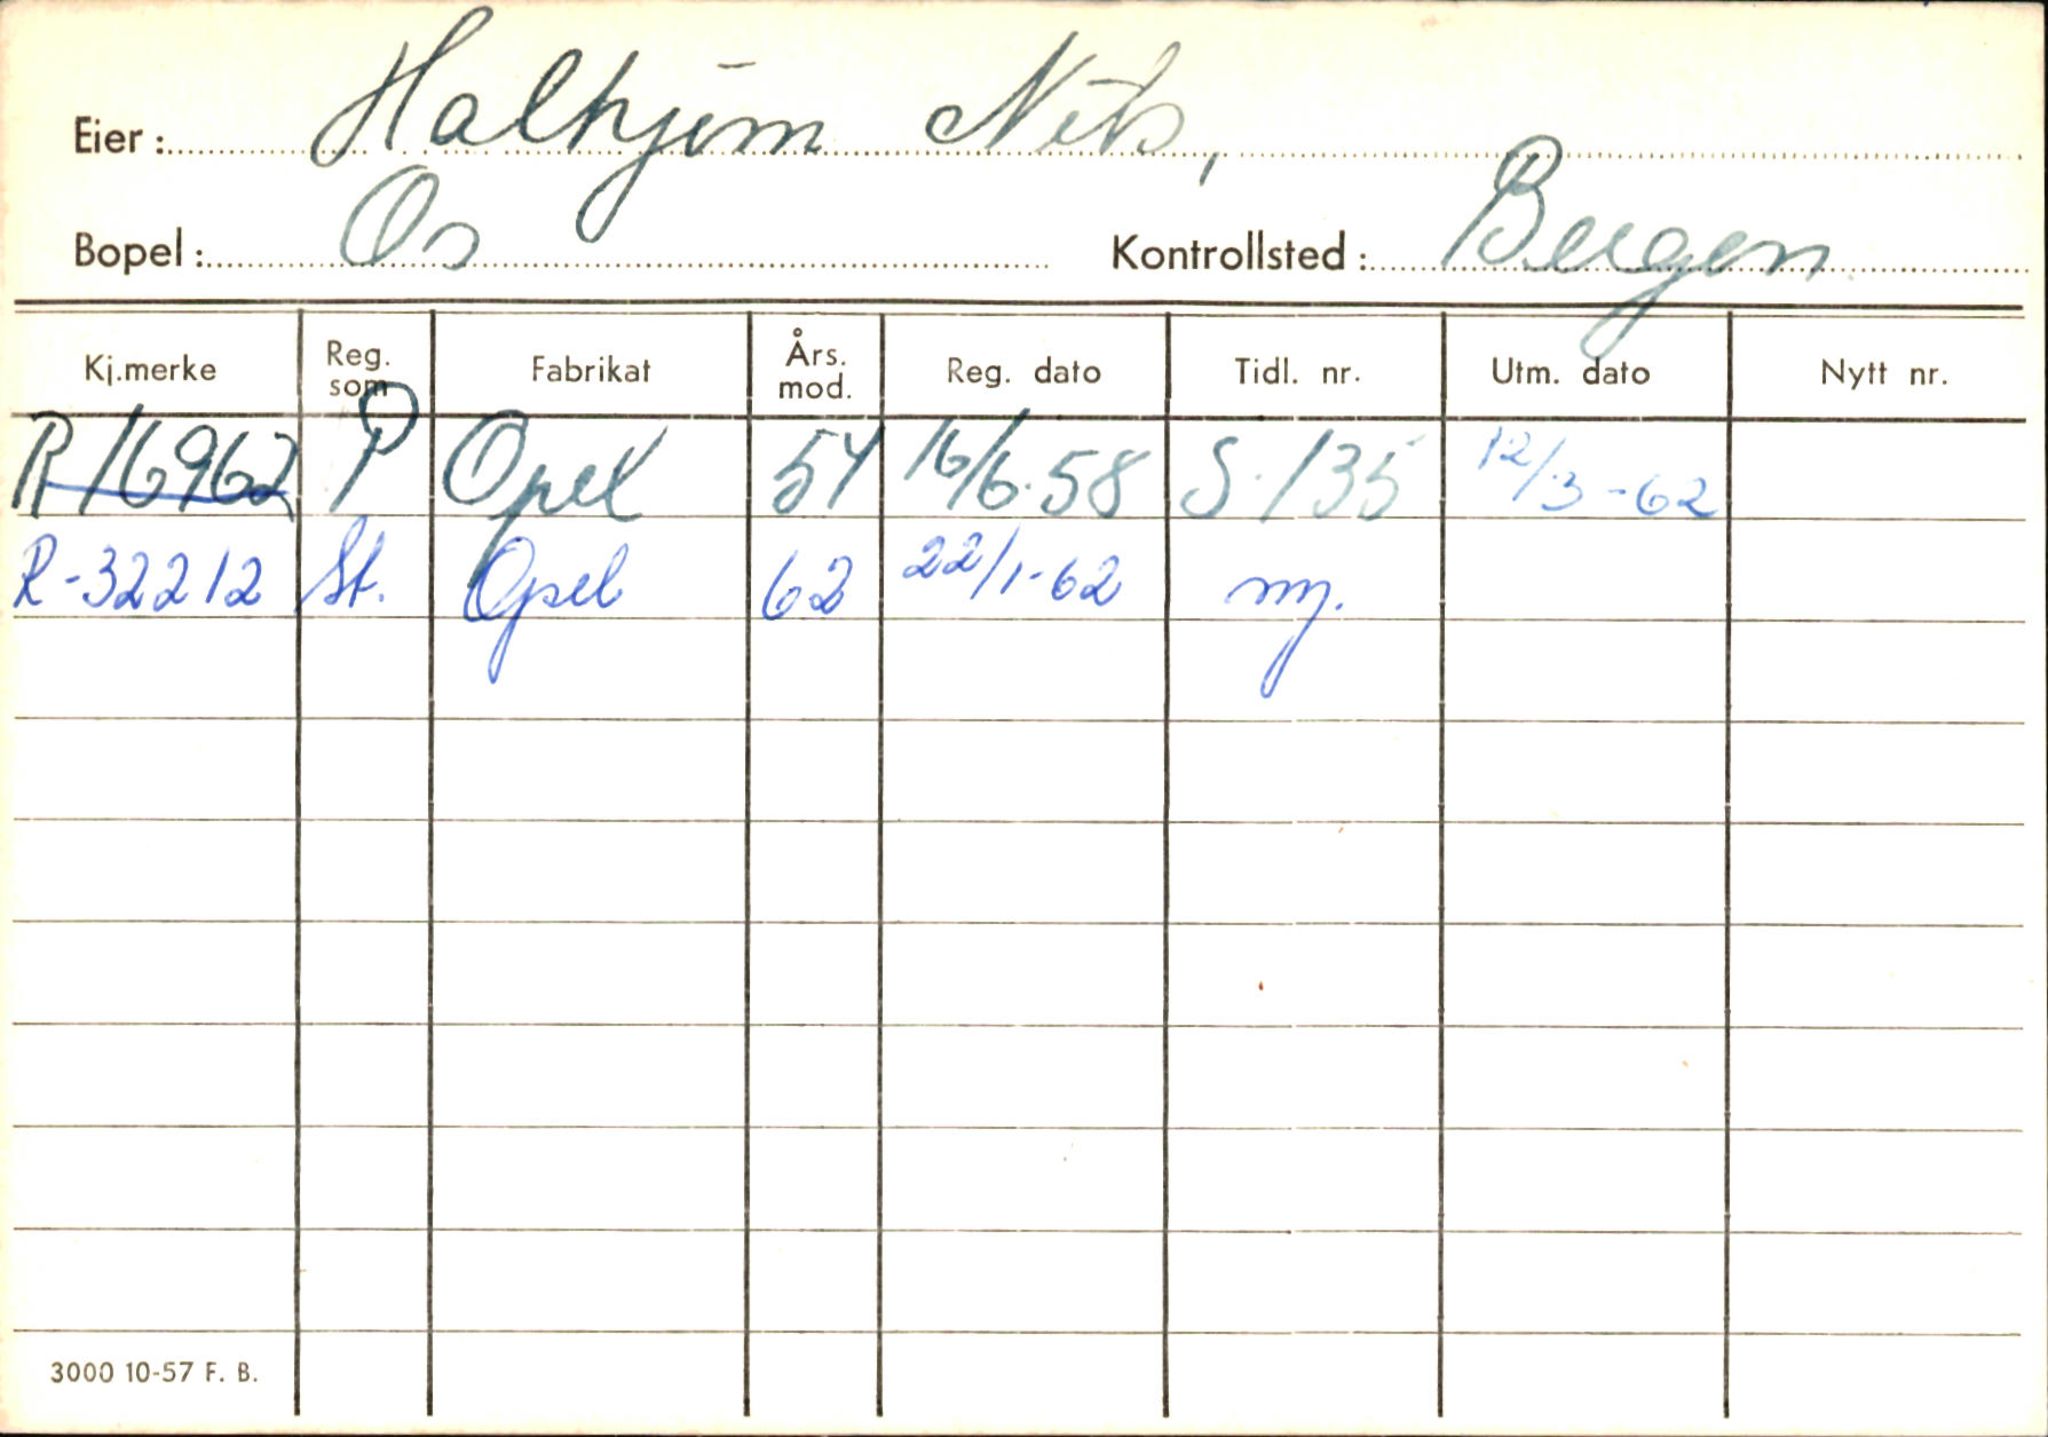 Eier: Halhjem Nils,
Bopel: Os Kontrollsted: Bergen
Kj.merke Reg. som Fabrikat Års. mod. Reg. dato Tidl. nr. Utm. dato Nytt nr.
R-16962 P Opel 54 16/6-58 S-135 12/3-62
R-32212 St. Opel 62 22/1-62 ny.
3000 10-57 F. B.